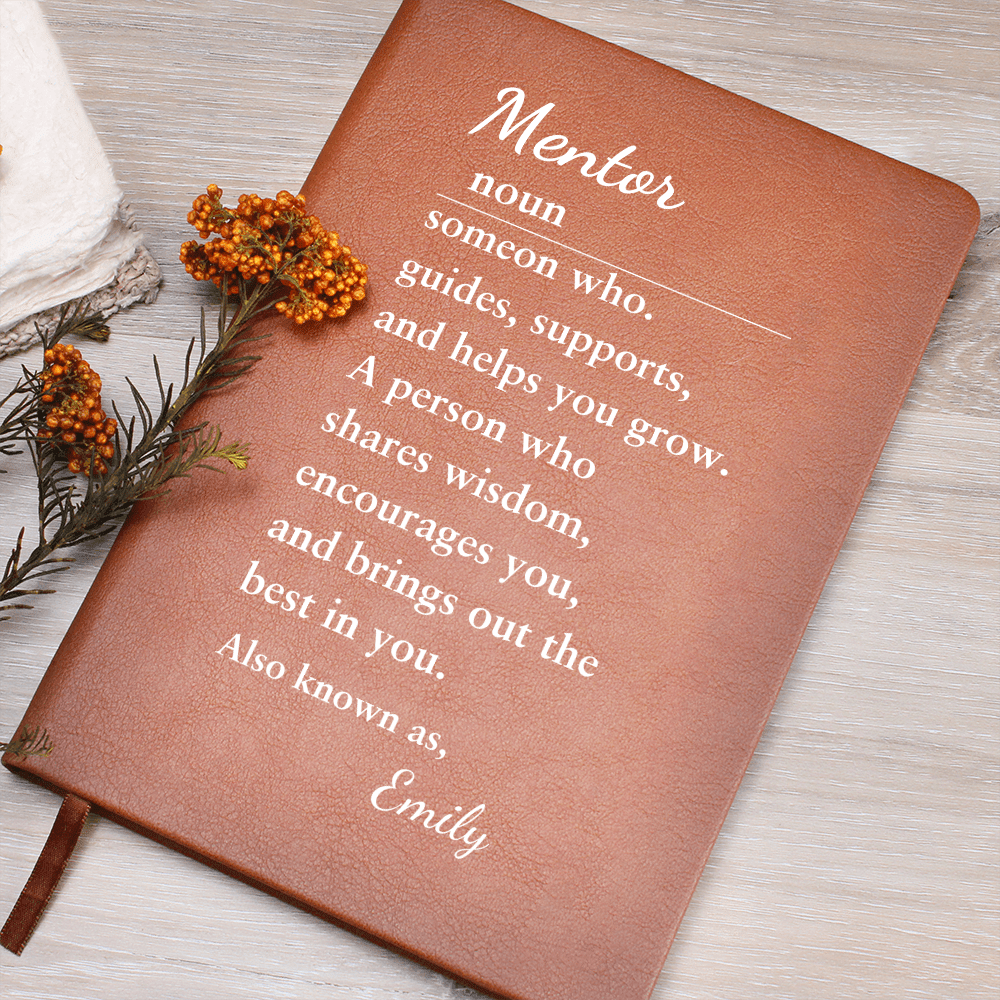 Mentor
noun
someon who.
guides, supports,
and helps you grow.
A person who
shares wisdom,
encourages you,
and brings out the
best in you.
Also known as,
Emily